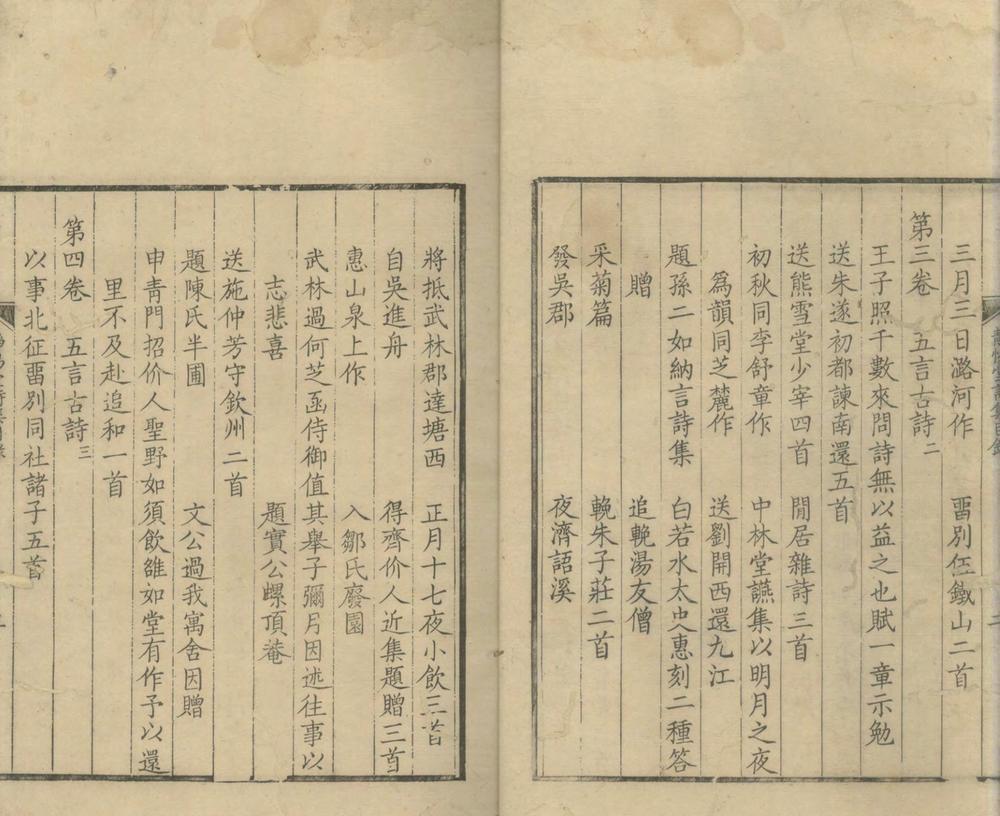 三月三日潞河作　畱別伍鐵山二首
第三卷　五言古詩二
王子照千數來問詩無以益之也賦一章示勉
送朱遂初都諫南還五首
送熊雪堂少宰四首　閒居雜詩三首
初秋同李舒章作　中林堂讌集以明月之夜
爲韻同芝麓作　送劉開西還九江
題孫二如納言詩集　白若水太史惠刻二種答
贈　追輓湯友僧
采菊篇　輓朱子莊二首
發吳郡　夜濟語溪
將抵武林郡達塘西　正月十七夜小飲三首
自吳進舟　得齊价人近集題贈三首
惠山泉上作　入鄒氏廢園
武林過何芝函侍御值其舉子彌月因述往事以
志悲喜　題實公螺頂菴
送施仲芳守欽州二首
題陳氏半圃　文公過我寓舍因贈
申青門招价人聖野如須飲雒如堂有作予以還
里不及赴追和一首
第四卷　五言古詩三
以事北征畱別同社諸子五首